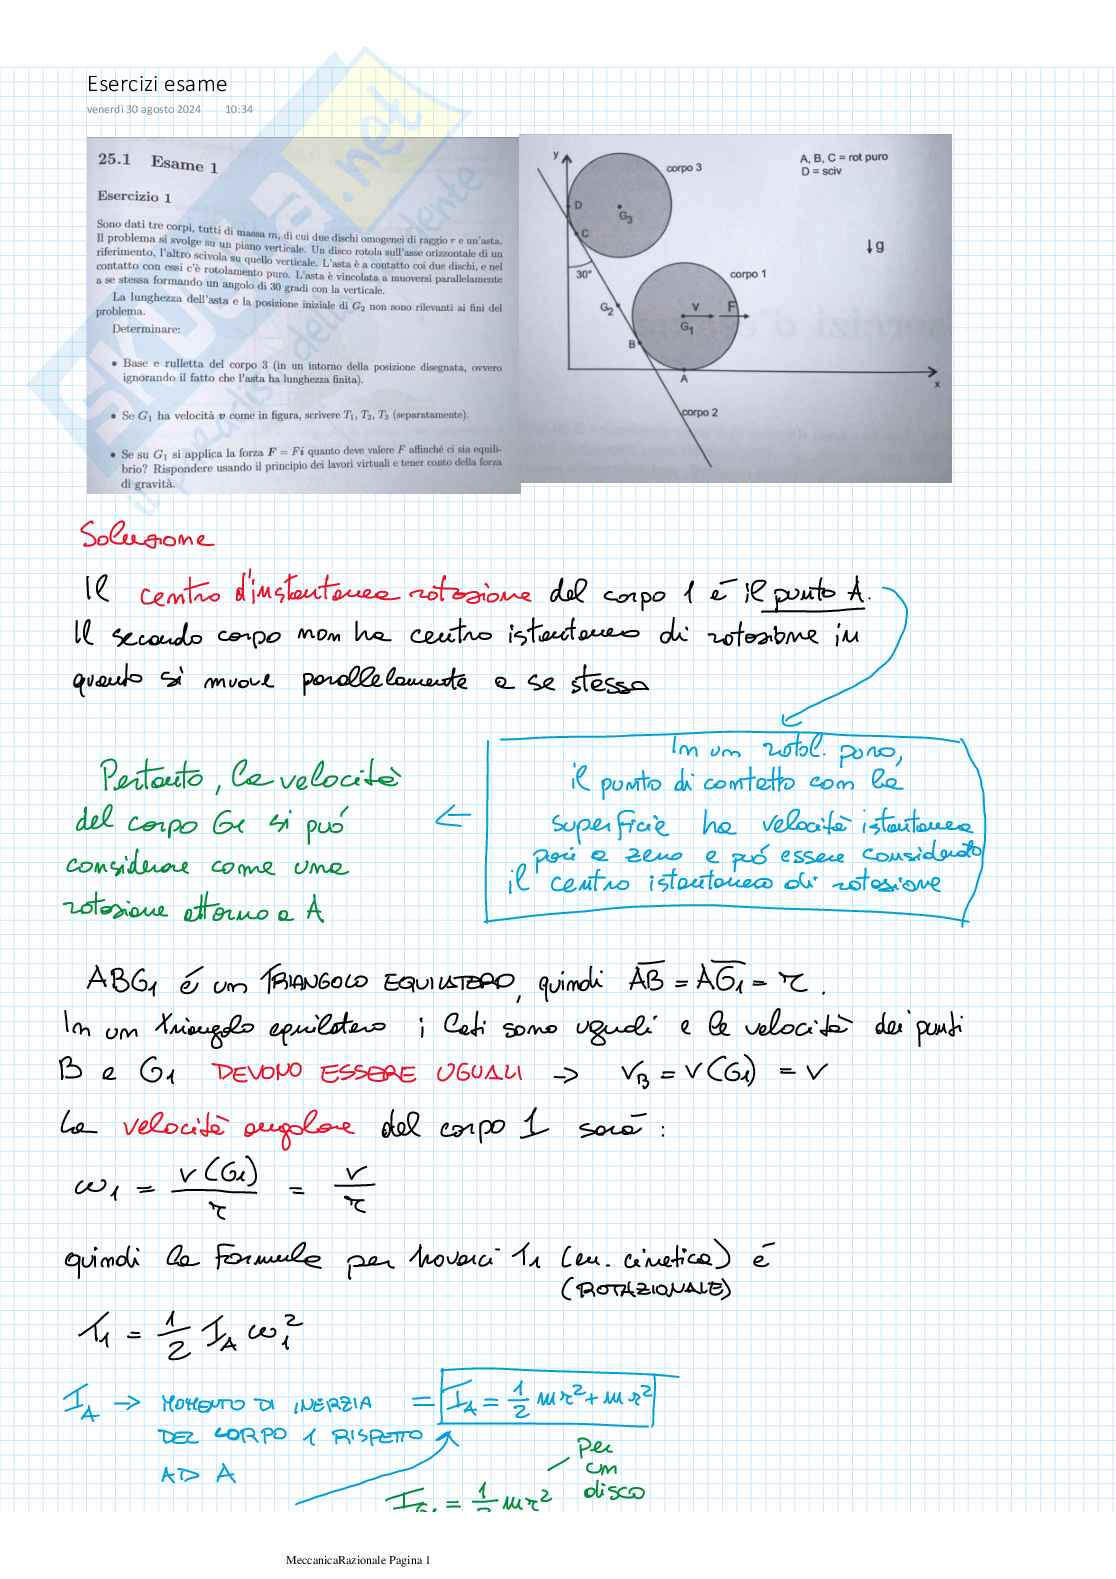 Esercizi esame
venerdì 30 agosto 2024 10:34
25.1 Esame 1
Esercizio 1
Sono dati tre corpi, tutti di massa m, di cui due dischi omogenei di raggio r e un'asta.
Il problema si svolge su un piano verticale. Un disco rotola sull'asse orizzontale di un
riferimento, l'altro scivola su quello verticale. L'asta è a contatto coi due dischi, e nel
contatto con essi c'è rotolamento puro. L'asta è vincolata a muoversi parallelamente
a se stessa formando un angolo di 30 gradi con la verticale.
La lunghezza dell'asta e la posizione iniziale di G2 non sono rilevanti ai fini del
problema.
Determinare:
• Base e rulletta del corpo 3 (in un intorno della posizione disegnata, ovvero
ignorando il fatto che l'asta ha lunghezza finita).
• Se G1 ha velocità v come in figura, scrivere T1, T2, T3 (separatamente).
• Se su G1 si applica la forza F = Fi quanto deve valere F affinché ci sia equili-
brio? Rispondere usando il principio dei lavori virtuali e tener conto della forza
di gravità.
y
corpo 3
A, B, C = rot puro
D = sciv
D
G3
C
g
30°
corpo 1
G2
V
F
G1
B
A
x
corpo 2
skuola.net
Soluzione
Il centro d'instantanea rotazione del corpo 1 è il punto A.
Il secondo corpo non ha centro istantaneo di rotazione in
quanto si muove parallelamente a se stesso
Pertanto, la velocità
del corpo G1 si può
considerare come una
rotazione attorno a A
In un rotol. puro,
il punto di contatto con la
superficie ha velocità istantanea
pari a zero e può essere considerato
il centro istantaneo di rotazione
ABG1 è un TRIANGOLO EQUILATERO, quindi AB = AG1 = r.
In un triangolo equilatero i lati sono uguali e le velocità dei punti
B e G1 DEVONO ESSERE UGUALI → VB = V(G1) = V
La velocità angolare del corpo 1 sarà :
ω1 = V(G1)/r = V/r
quindi la formula per trovarci T1 (en. cinetica) è
(ROTAZIONALE)
T1 = 1/2 IA ω1²
IA → MOMENTO DI INERZIA = IA = 1/2 mr² + mr²
DEL CORPO 1 RISPETTO
AD A
per
un
disco
IG1 = 1/2 mr²
MeccanicaRazionale Pagina 1